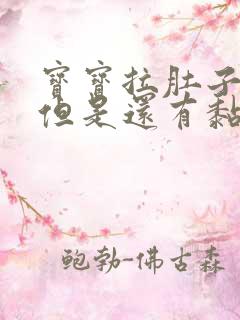 寶寶拉肚子
但是還有黏
鮑勃-佛古森